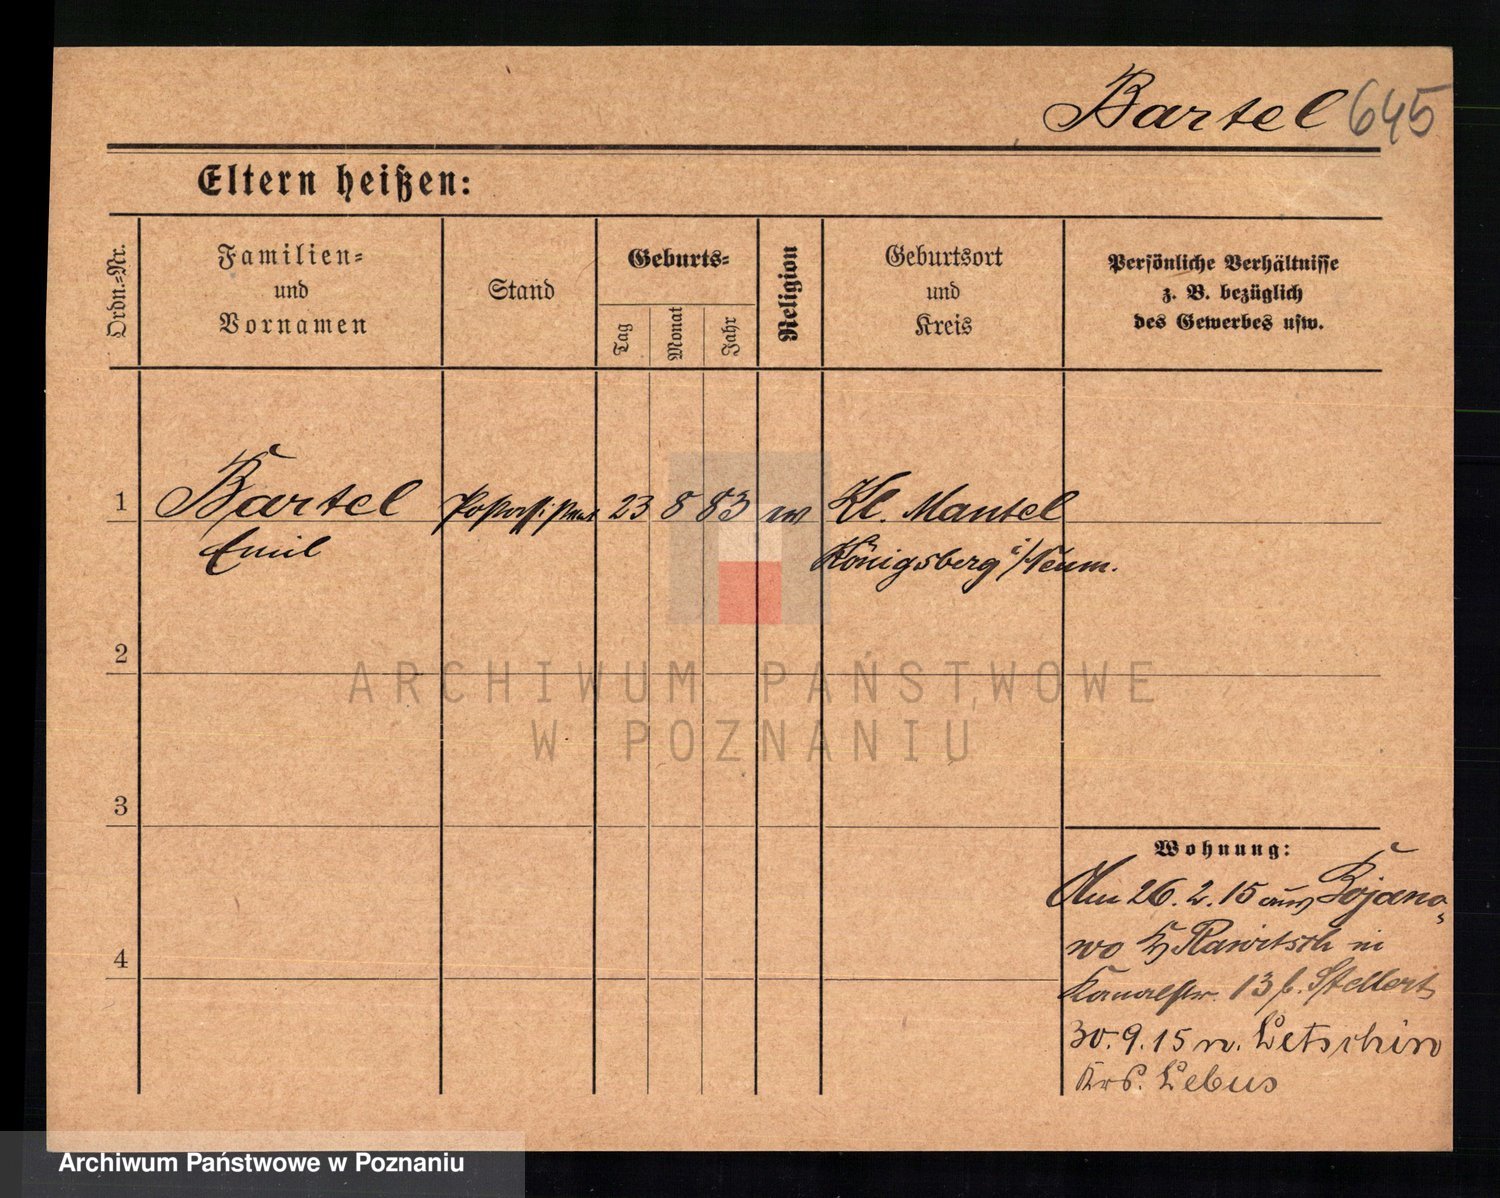 Bartel 645
Eltern heißen:
Ordn.=Nr.
Familien=
und
Vornamen
Stand
Geburts=
Tag
Monat
Jahr
Religion
Geburtsort
und
Kreis
Persönliche Verhältnisse
z. B. bezüglich
des Gewerbes usw.
1 Bartel Postassistent 23 8 83 ev Kl. Mantel
Emil Königsberg i/Neum.
2
3
4
Wohnung:
Am 26.2.15 aus Bojano=
wo Rawitsch in
Kanalstr. 13 b. Stellert
30.9.15 n. Letschin
Krs. Lebus
ARCHIWUM PAŃSTWOWE
W POZNANIU
Archiwum Państwowe w Poznaniu